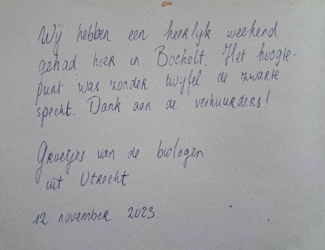 Wij hebben een heerlijk weekend
gehad hier in Bocholt. Het hoogte-
punt was zonder twijfel de zwarte
specht. Dank aan de verhuurders!
Groetjes van de biologen
uit Utrecht
12 november 2023